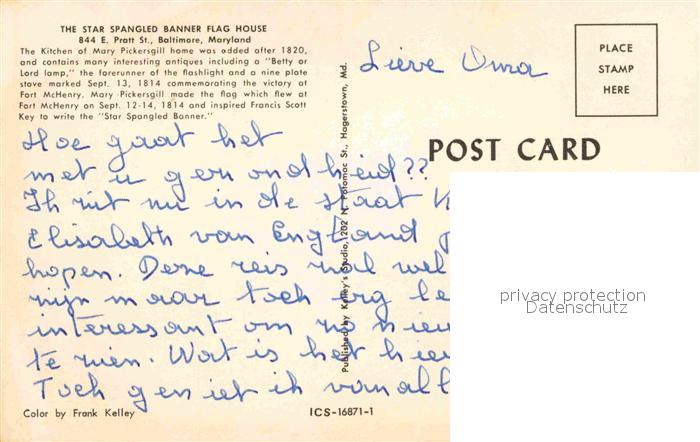 THE STAR SPANGLED BANNER FLAG HOUSE
844 E. Pratt St., Baltimore, Maryland
The Kitchen of Mary Pickersgill home was added after 1820,
and contains many interesting antiques including a "Betty or
Lord lamp," the forerunner of the flashlight and a nine plate
stove marked Sept. 13, 1814 commemorating the victory at
Fort McHenry. Mary Pickersgill made the flag which flew at
Fort McHenry on Sept. 12-14, 1814 and inspired Francis Scott
Key to write the "Star Spangled Banner."
Lieve Oma
PLACE
STAMP
HERE
POST CARD
Hoe gaat het
met u gezondheid??
Ik zit nu in de staat
Elisabeth van England
hopen. Deze reis zal wel
zijn maar toch erg le
interessant om zo nieu
te zien. Wat is het hier
Toch geniet ik van all
Published by Kelley's Studio, 1202 N. Potomac St., Hagerstown, Md.
Color by Frank Kelley
ICS-16871-1
privacy protection
Datenschutz